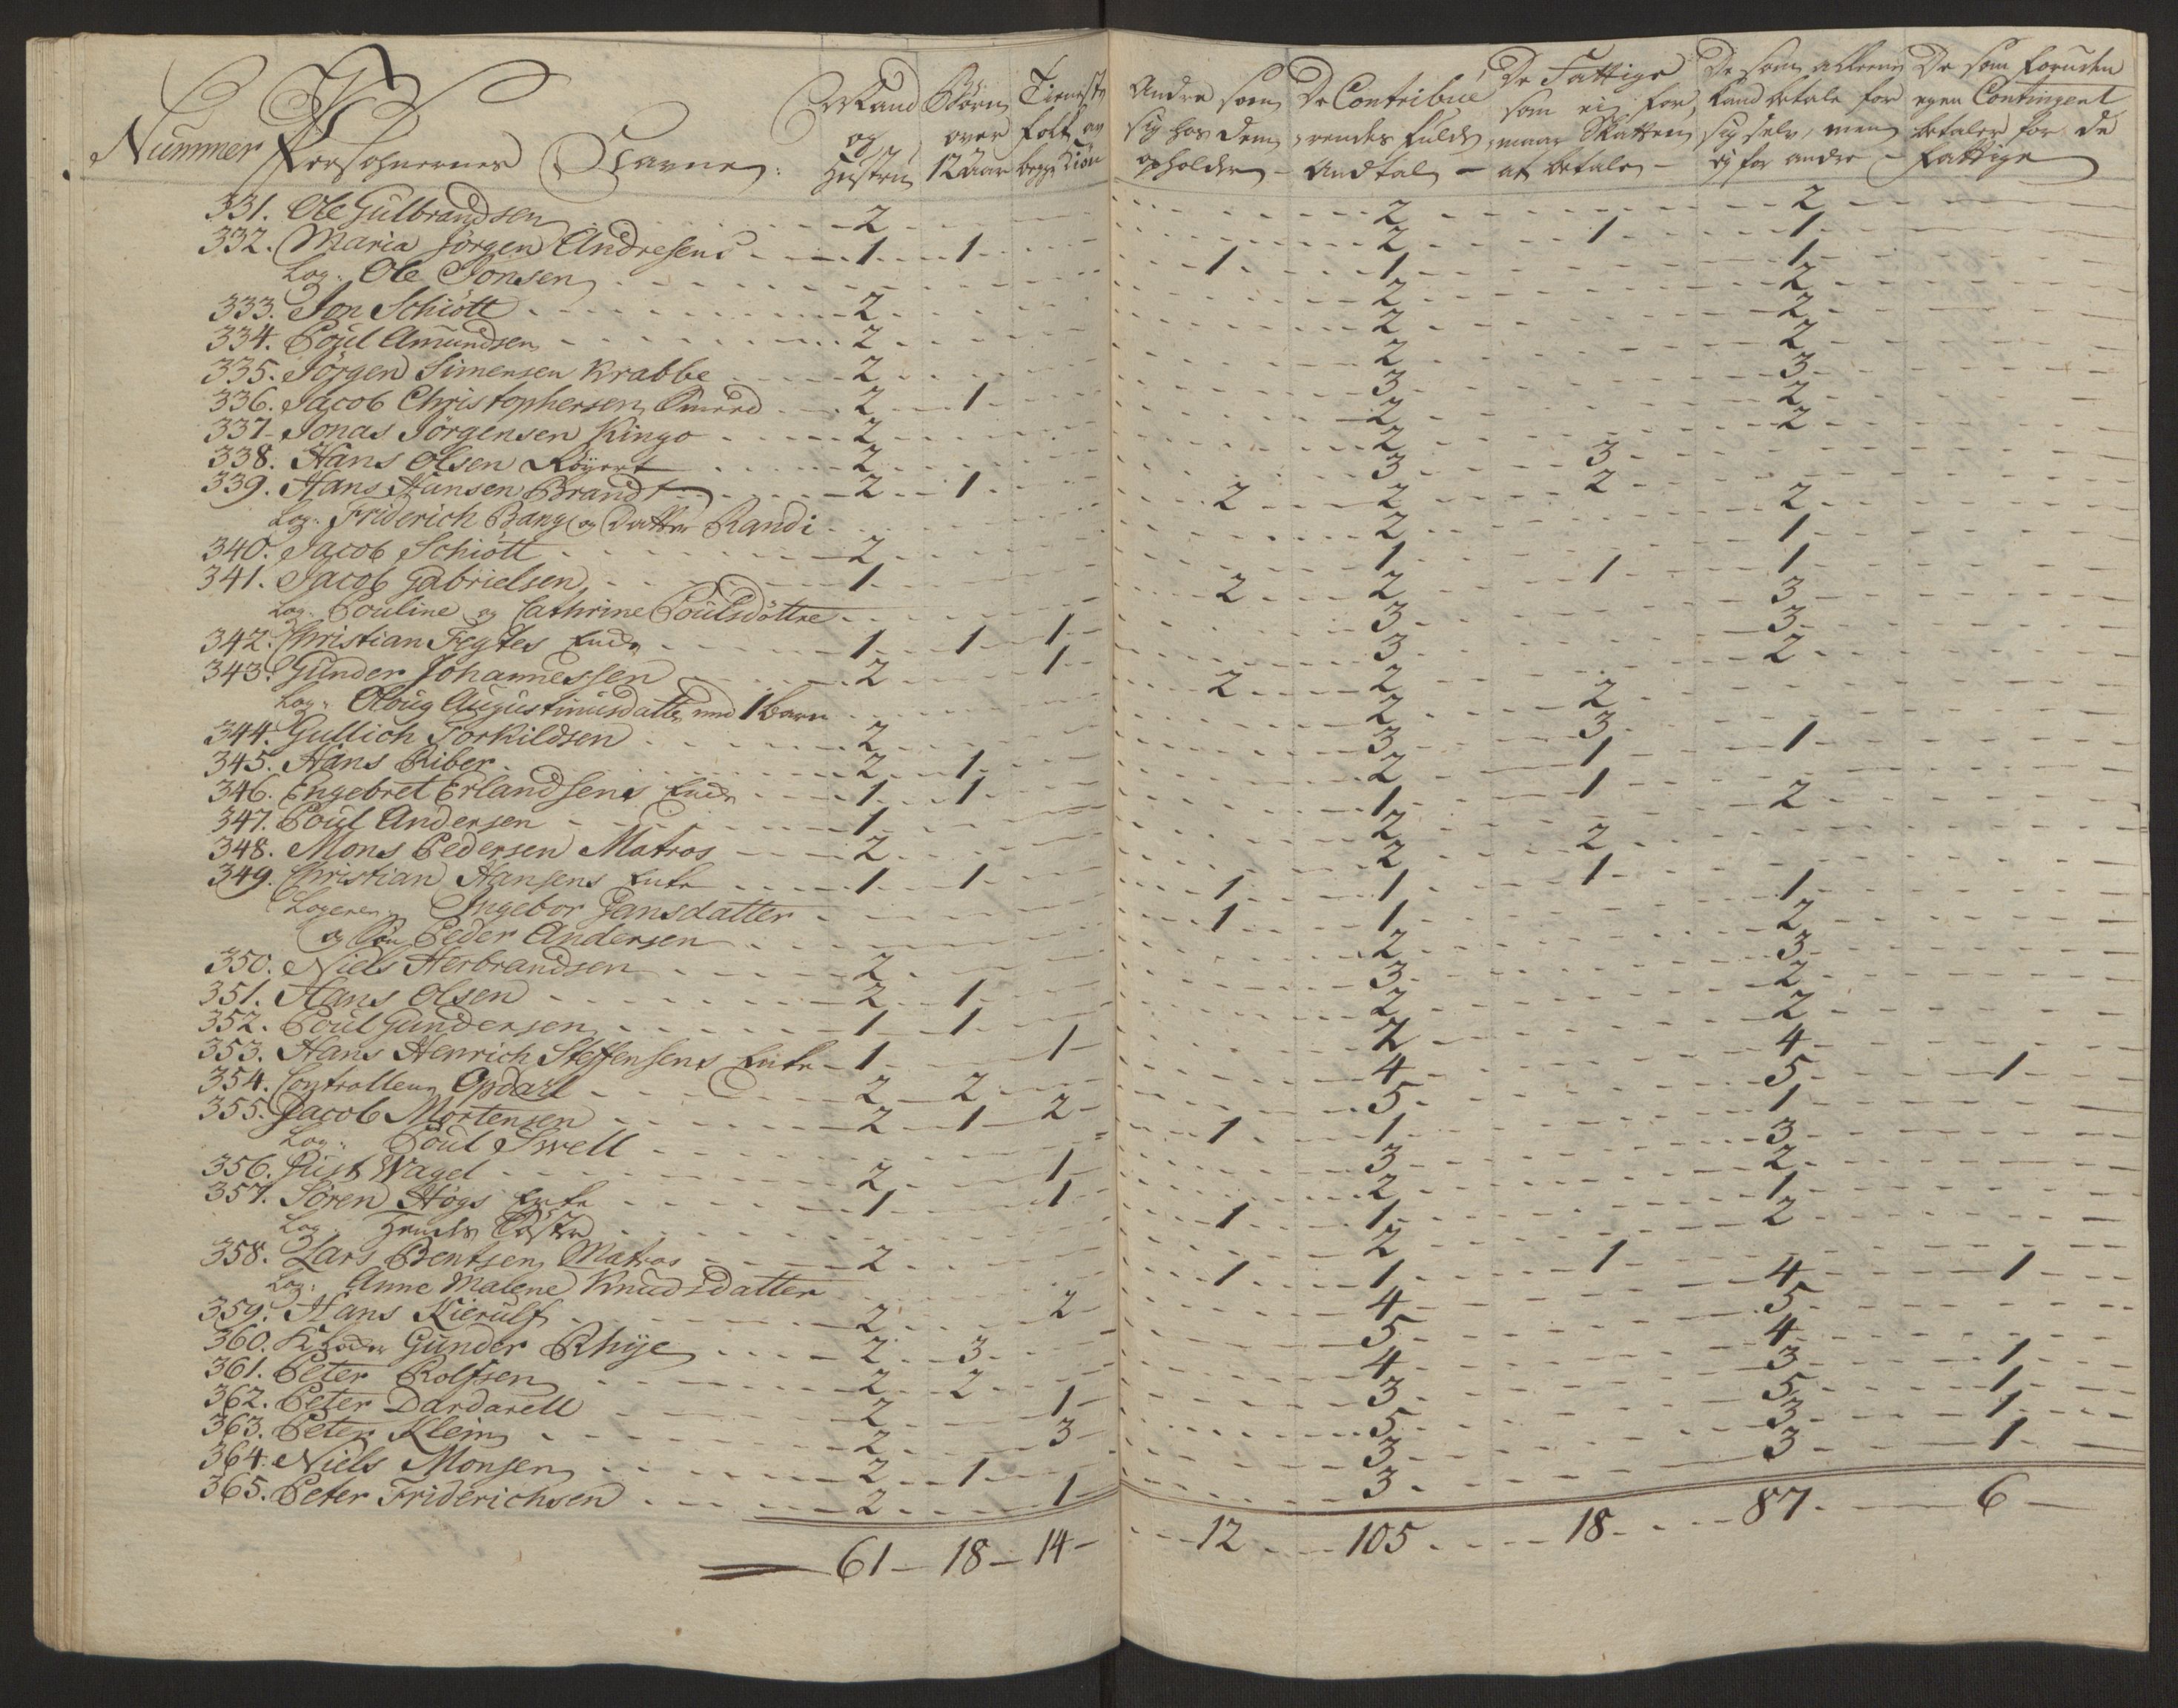 Nummer Persohnernes Navne. Mand og Hustru Børn over 12 Aar Tieneste folk af begge Kiøn Andre som sig hos dem opholder De Contribuerendes fulde Andtal De Fattige som ej formaar Skatten at betale De som alleene kand betale for sig selv, men ej for andre De som foruden egen Contingent betaler for de fattige
331. Ole Gulbrandsen 2 2 2
332. Maria Jörgen Andresens 1 1 2 1 1
Log. Ole Jonsen 1 1 1
333. Jon Schiött 2 2 2
334. Poul Amundsen 2 2 2
335. Jörgen Simensen Krabbe 2 2 2
336. Jacob Christophersen Smed 2 1 3 3
337. Jonas Jörgensen Kingo 2 2 2
338. Hans Olsen Röyert 2 2 2
339. Hans Hansen Brandt 2 1 3 3
Log. Friderich Bang og Datter Randi 2 2 2
340. Jacob Schiött 2 2 2
341. Jacob Gabrielsen 1 1 1
Log. Pouline og Cathrine Poulsdöttre 2 2 1 1
342. Christian Fegtes Enke 1 1 1 3 3
343. Gunder Johannessen 2 1 3 3
Log. Oloug Augustinusdatter med 1 barn 2 2 2
344. Gullich Torkildsen 2 2 2
345. Hans Riber 2 1 3 3
346. Engebret Erlandsens Enke 1 1 2 1 1
347. Poul Andersen 1 1 1
348. Mons Pedersen Matros 2 2 2
349. Christian Hansens Enke 1 1 2 2
Logerer Ingebor Jansdatter 1 1 1
og Sön Peder Andersen 1 1 1
350. Niels Herbrandsen 2 2 2
351. Hans Olsen 2 1 3 3
352. Poul Gundersen 1 1 2 2
353. Hans Henrich Steffensens Enke 1 1 2 2
354. Controlleur Opdahl 2 2 4 4
355. Jacob Mortensen 2 1 2 5 5 1
Log. Poul Swell 1 1 1
356. Just Wagel 2 1 3 3
357. Sören Högs Enke 1 1 2 2
Log. Hendes Söster 1 1 1
358. Lars Bentsen Matros 2 2 2
Log. Anne Malene Knudsdatter 1 1 1
359. Hans Kierulf 2 2 4 4 1
360. Gunder Rhye 2 3 5 5
361. Peter Rolfsen 2 2 4 4
362. Peter Dardarell 2 1 3 3 1
363. Peter Klein 2 3 5 5 1
364. Niels Monsen 2 1 3 3 1
365. Peter Friderichsen 2 1 3 3 1
61 18 14 12 105 18 87 6